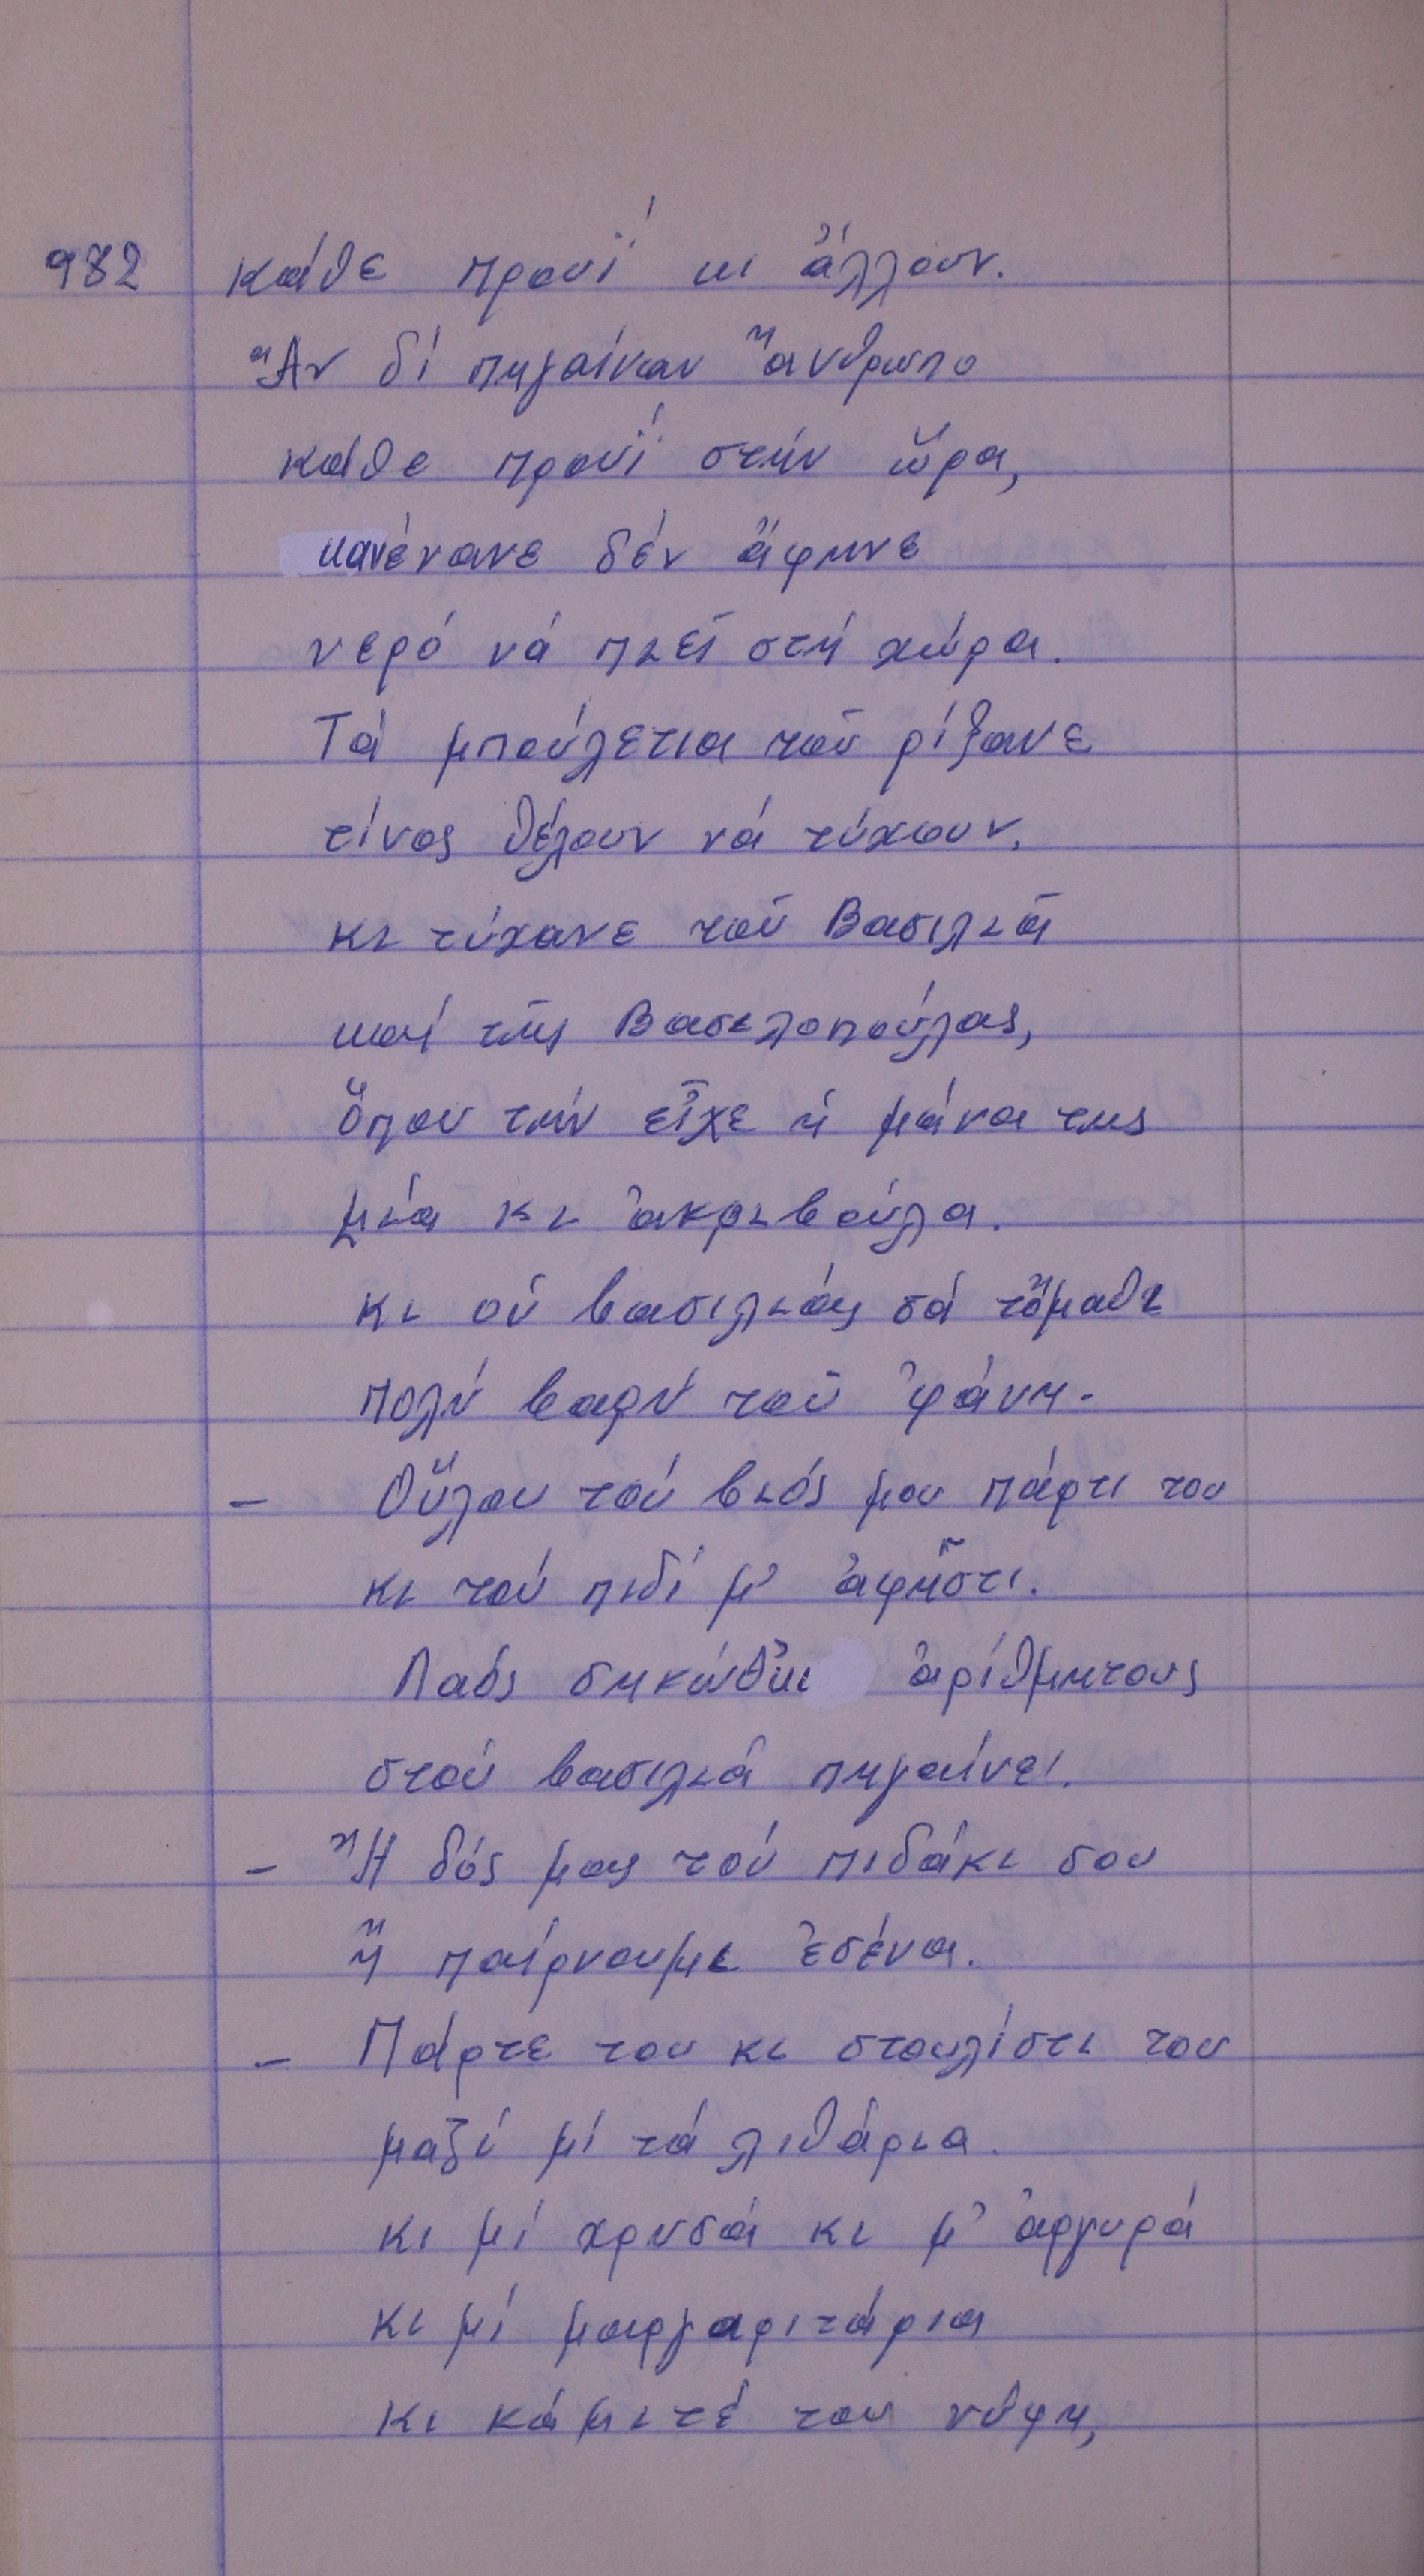 982 κάθε προυΐ κι ἄλλουν.
Ἄν δέ πηγαίναν ἄνθρωπο
κάθε προυΐ στήν ὥρα,
κανένανε δέν ἄφηνε
νερό νά πιεῖ στή χώρα.
Τά μπούλετια τοῦ ρίξανε
τίνος θέλουν νά τύχουν,
κι τύχανε τοῦ Βασιλιᾶ
καί τῆς Βασιλοπούλας,
ὅπου τήν εἶχε ἡ μάνα της
μιά κι ἀκριβούλα.
κι οὑ βασιλιάς σά τὄμαθι
πολύ βαρύ τοῦ 'φάνη.
- Οὕλου τού βιός μου πάρτι του
κι τού πιδί μ' ἀφῆστι.
Λαός σηκώθ'κι ἀρίθμητους
στού βασιλιά πηγαίνει.
- Ἤ δός μας τού πιδάκι σου
ἤ παίρνουμι ἐσένα.
- Πάρτε του κι στουλίστι του
μαζί μί τά λιθάρια.
κι μί χρυσά κι μ' ἀργυρά
κι μί μαργαριτάρια
κι κάμιτέ του νύφη,